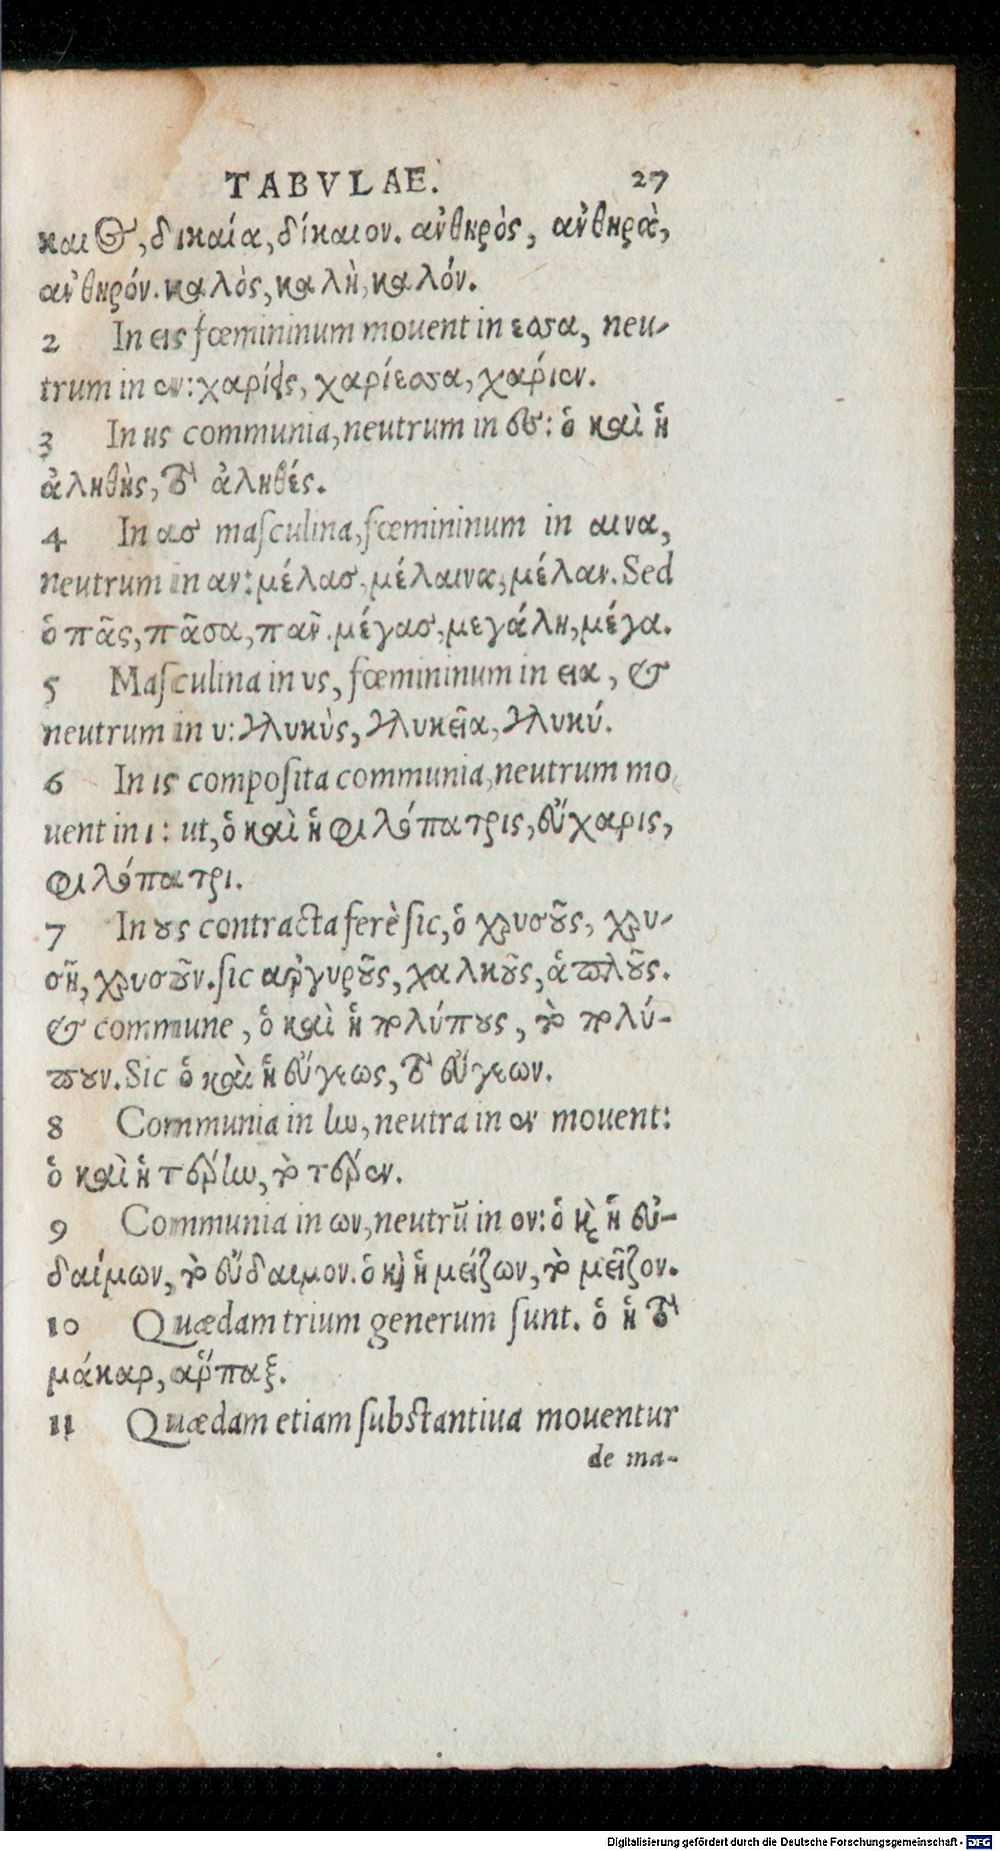 TABVLAE. 27
καιος, δικαία, δίκαιον. ἀνθηρὸς, ἀνθηρὰ,
ἀνθηρόν. καλὸς, καλὴ, καλόν.
2 In εις fœmininum mouent in εσσα, neu-
trum in εν: χαρίεις, χαρίεσσα, χαρίεν.
3 In ης communia, neutrum in ες: ὁ καὶ ἡ
ἀληθὴς, τὸ ἀληθές.
4 In ας maſculina, fœmininum in αινα,
neutrum in αν: μέλας, μέλαινα, μέλαν. Sed
ὁ πᾶς, πᾶσα, πᾶν. μέγας, μεγάλη, μέγα.
5 Maſculina in υς, fœmininum in εια, &
neutrum in υ: γλυκὺς, γλυκεῖα, γλυκύ.
6 In ις compoſita communia, neutrum mo
uent in ι: ut, ὁ καὶ ἡ φιλόπατρις, εὔχαρις,
φιλόπατρι.
7 In ους contracta ferè ſic, ὁ χρυσοῦς, χρυ-
σῆ, χρυσοῦν. ſic ἀργυροῦς, χαλκοῦς, ἁπλοῦς.
& commune, ὁ καὶ ἡ πολύπους, τὸ πολύ-
πουν. Sic ὁ καὶ ἡ εὔγεως, τὸ εὔγεων.
8 Communia in ην, neutra in εν mouent:
ὁ καὶ ἡ τέρην, τὸ τέρεν.
9 Communia in ων, neutrũ in ον: ὁ καὶ ἡ εὐ-
δαίμων, τὸ εὔδαιμον. ὁ καὶ ἡ μείζων, τὸ μεῖζον.
10 Quædam trium generum ſunt. ὁ ἡ τὸ
μάκαρ, ἅρπαξ.
11 Quædam etiam ſubſtantiua mouentur
de ma-
Digitalisierung gefördert durch die Deutsche Forschungsgemeinschaft - DFG